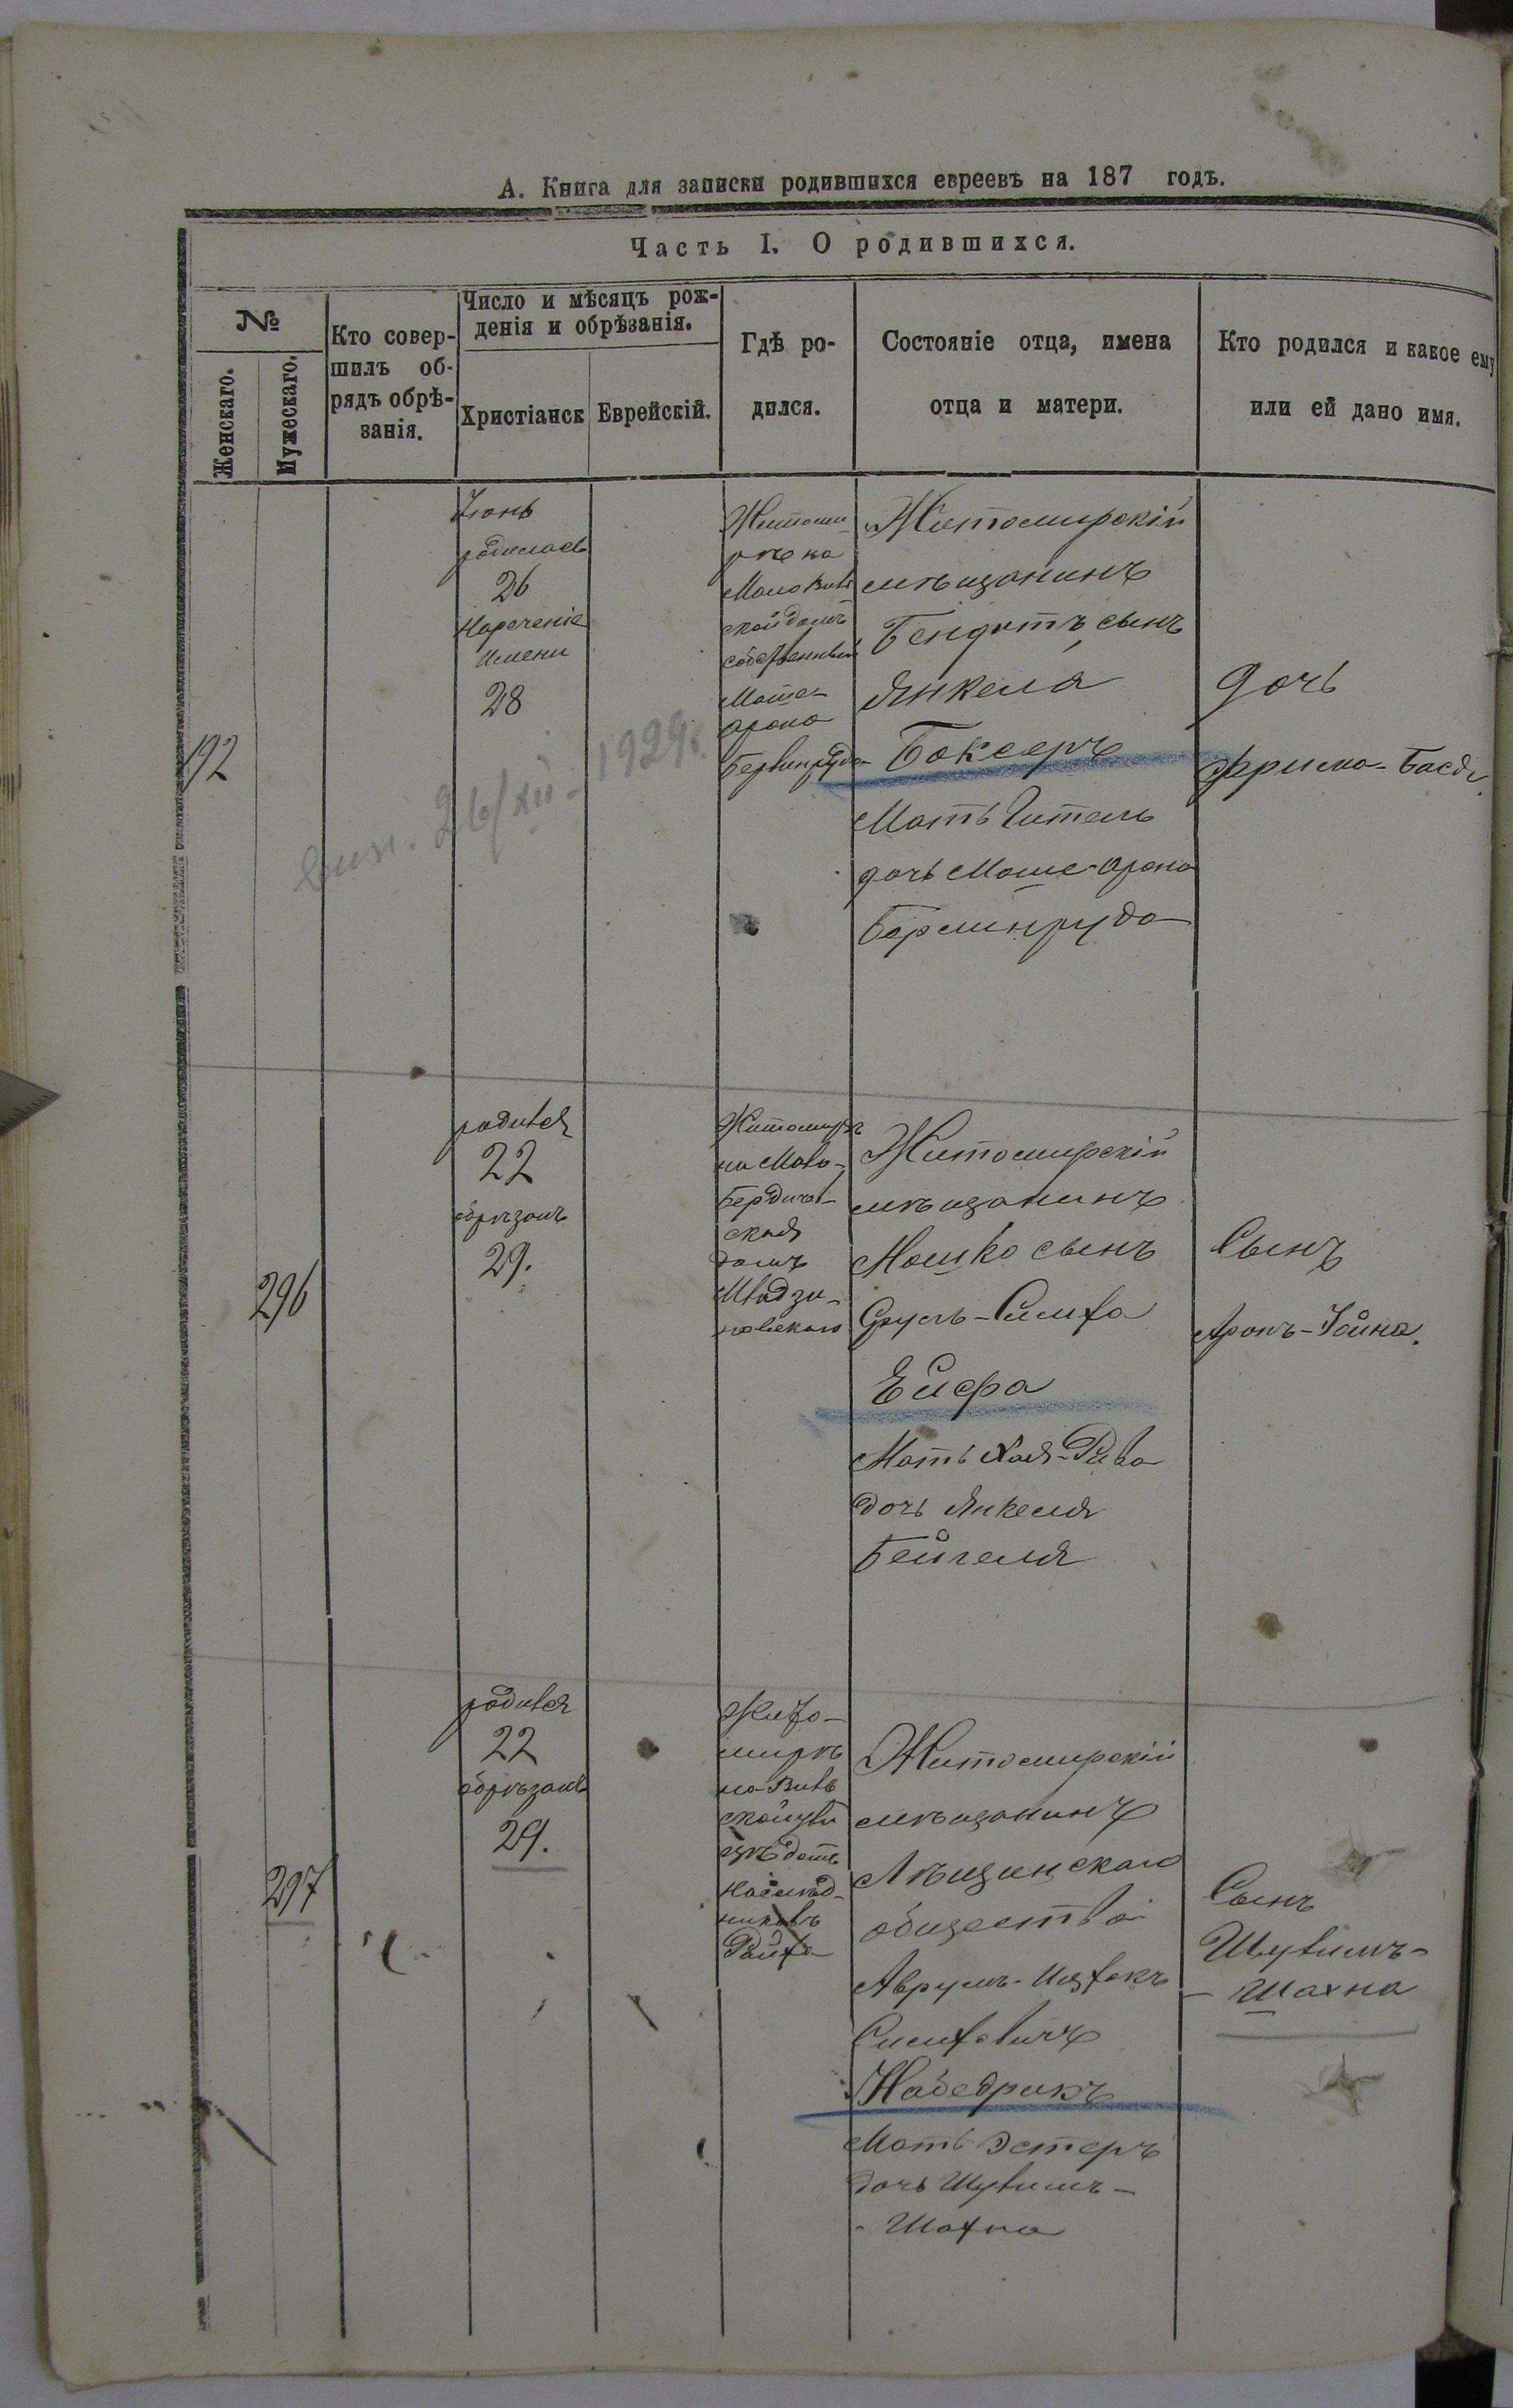 А. Книга для записки родившихся евреевъ на 187 годъ.
Часть I. О родившихся.
№
Женскаго.
Мужескаго.
Кто совер-
шилъ об-
рядъ обрѣ-
занія.
Число и мѣсяцъ рож-
денія и обрѣзанія.
Христіанск
Еврейскій.
Гдѣ ро-
дился.
Состояніе отца, имена
отца и матери.
Кто родился и какое ему
или ей дано имя.
192
Іюнь
родилась
26
Нареченіе
имени
28
Житоми
рѣ на
скои домъ
собственный
Моше-
Арона
Житомирскій
мѣщанинъ
сынъ
Янкеля
Боксеръ
Мать Гитель
дочь Моше-Арона
Берминруда
дочь
Фрима-Бася.
1929г.
296
родился
22
обрѣзанъ
29.
Житомирѣ
на Мало-
Бердичев-
ская
домъ
Житомирскій
мѣщанинъ
Мошко сынъ
Срулъ-Симха
Ейфра
Мать Хая-Рива
дочь Янкеля
Бейгеля
Сынъ
Аронъ-Іойна.
297
родился
22
обрѣзанъ
29.
Жито-
мирѣ
на Виль
ской ули
цѣ домъ
Наслѣд-
никовъ
Житомирскій
мѣщанинъ
Лѣщинскаго
общества
Аврумъ-Ицхокъ
Симховичъ
Набедрикъ
Мать Эстеръ
дочь Шулимъ-
-Шахна
Сынъ
Шулимъ-
-Шахна